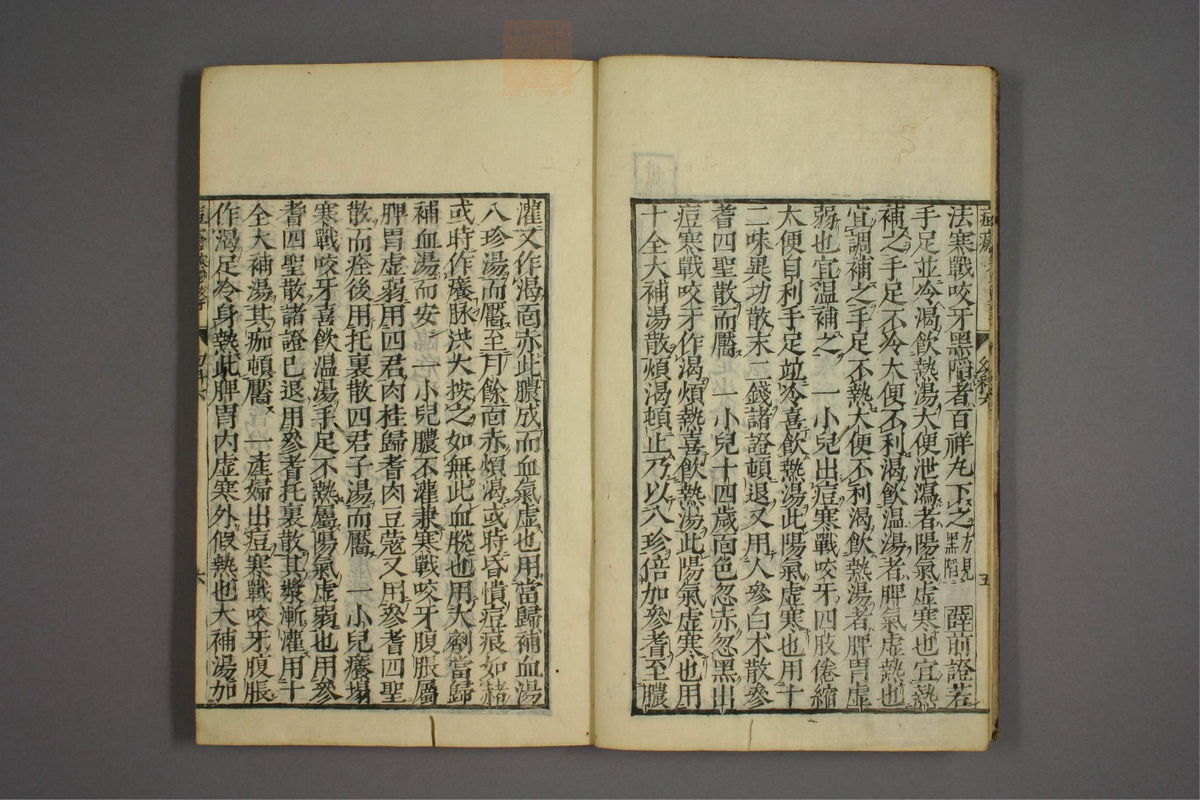 法寒戰咬牙黑陷者百祥丸下之方見黑陷 薛前證若
手足並冷渴飲熱湯大便泄瀉者陽氣虛寒也宜熱
補之手足不冷大便不利渴飲温湯者脾氣虛熱也
宜調補之手足不熱大便不利渴飲熱湯者脾胃虛
弱也宜温補之 一小兒出痘寒戰咬牙四肢倦縮
大便自利手足並冷喜飲熱湯此陽氣虛寒也用十
二味異功散末二錢諸證頓退又用人參白术散參
耆四聖散而靨 一小兒十四歲面色忽赤忽黑出
痘寒戰咬牙作渴煩熱喜飲熱湯此陽氣虛寒也用
十全大補湯散煩渴頓止乃以八珍倍加參耆至膿
五
灌又作渴面赤此膿成而血氣虛也用當歸補血湯
八珍湯而靨至月餘面赤煩渴或時昏憒痘痕如赭
或時作癢脉洪大按之如無此血脫也用大劑當歸
補血湯而安 一小兒膿不灌兼寒戰咬牙腹脹屬
脾胃虛弱用四君肉桂歸耆肉豆蔻又用參耆四聖
散而痊後用托裏散四君子湯而靨 一小兒癢塌
寒戰咬牙喜飲温湯手足不熱屬陽氣虛弱也用參
耆四聖散諸證已退用參耆托裏散其漿漸灌用十
全大補湯其痂頓靨 一產婦出痘寒戰咬牙腹脹
作渴足冷身熱此脾胃內虛寒外假熱也大補湯加
六